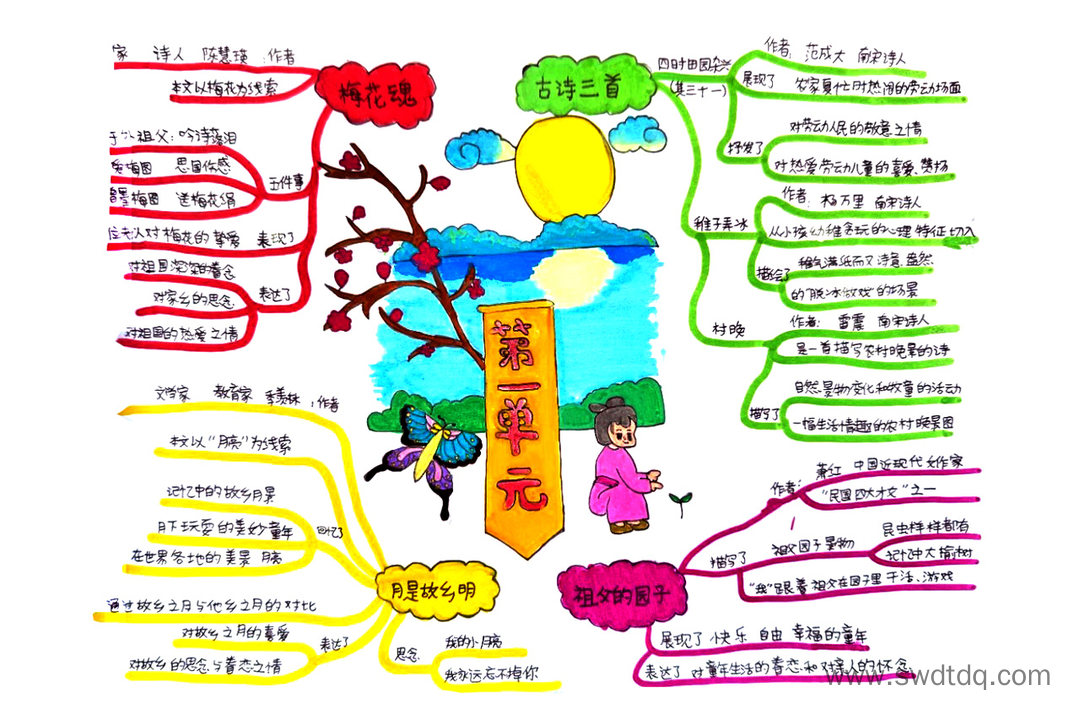 第一单元
梅花魂
家 诗人 陈慧瑛 :作者
本文以梅花为线索
五件事
外祖父:吟诗落泪
梅图 思国伤感
墨梅图 送梅花绢
表现了
对梅花的挚爱
表达了
对祖国深深的眷恋
对家乡的思念
对祖国的热爱之情
古诗三首
四时田园杂兴
(其三十一)
作者:范成大 南宋诗人
展现了 农家夏忙时热闹的劳动场面
抒发了
对劳动人民的敬意之情
对热爱劳动儿童的喜爱、赞扬
稚子弄冰
作者:杨万里 南宋诗人
从小孩幼稚贪玩的心理特征切入
描绘了
稚气满纸而又诗意盎然
的"脱冰做戏"的场景
村晚
作者: 雷震 南宋诗人
是一首描写农村晚景的诗
描写了
自然景物变化和牧童的活动
一幅生活情趣的农村晚景图
月是故乡明
文学家 教育家 季羡林 :作者
本文以"月亮"为线索
回忆了
记忆中的故乡月景
月下玩耍的美妙童年
在世界各地的美景 月亮
通过故乡之月与他乡之月的对比
表达了
对故乡之月的喜爱
对故乡的思念与眷恋之情
思念
我的小月亮
我永远忘不掉你
祖父的园子
作者:
萧红 中国近现代女作家
"民国四大才女"之一
描写了
祖父园子景物
昆虫样样都有
记忆中大榆树
"我"跟着祖父在园子里干活、游戏
展现了 快乐 自由 幸福的童年
表达了 对童年生活的眷恋和对亲人的怀念
www.swdtdq.com